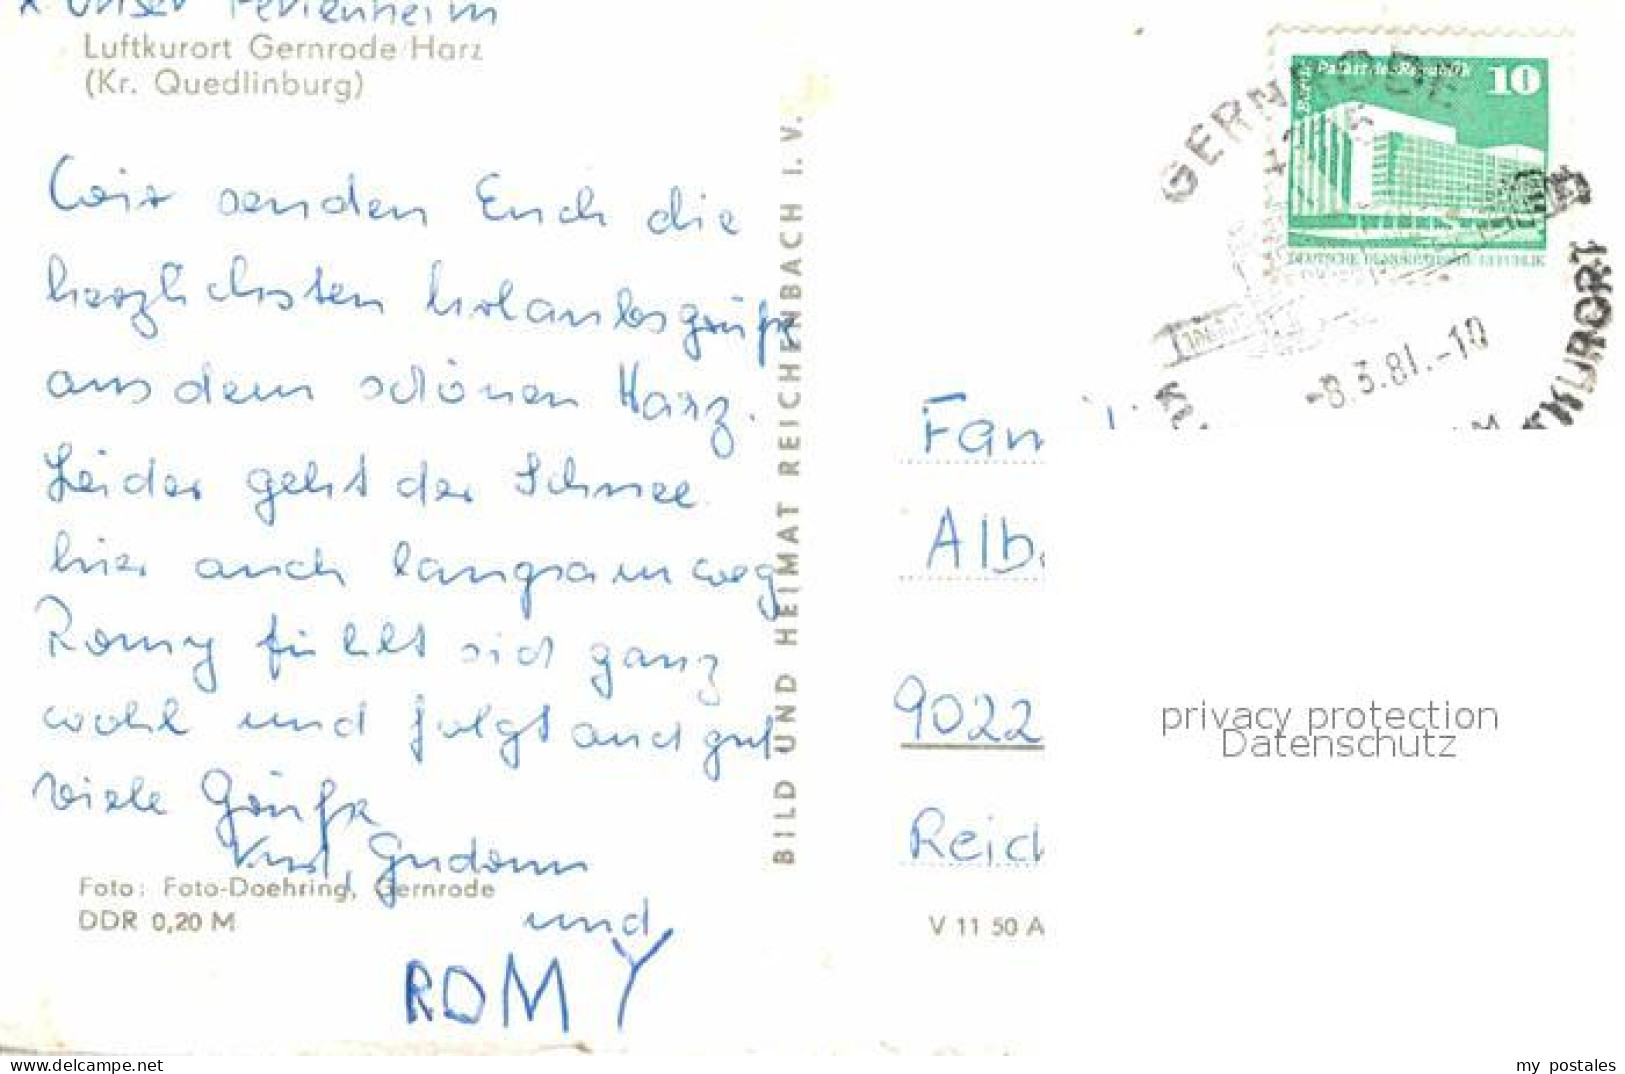 x Unser Ferienheim
Luftkurort Gernrode/Harz
(Kr. Quedlinburg)
Wir senden Euch die
herzlichsten Urlaubsgrüße
aus dem schönen Harz.
Leider geht der Schnee
hier auch langsam weg
Romy fühlt sich ganz
wohl und folgt auch gut
viele Grüße
Gudrun
und
ROMY
Foto: Foto-Doehring, Gernrode
DDR 0,20 M
BILD UND HEIMAT REICHENBACH I. V.
Berlin Palast der Republik 10
DEUTSCHE DEMOKRATISCHE REPUBLIK
GERNRODE
-8.3.81.-10
Fam
Alb
9022
Reich
V 11 50 A
privacy protection
Datenschutz
delcampe.net
my_postales